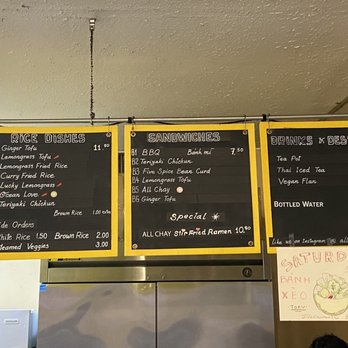 RICE DISHES
Ginger Tofu 11.50
Lemongrass Tofu
Lemongrass Fried Rice
Curry Fried Rice
Lucky Lemongrass
Ocean Love
Teriyaki Chickun
Brown Rice 1.00 extra
Side Orders
White Rice 1.50 Brown Rice 2.00
Steamed Veggies 3.00
SANDWICHES
B1 BBQ Bánh mì 7.50
B2 Teriyaki Chickun
B3 Five Spice Bean Curd
B4 Lemongrass Tofu
B5 All Chay
B6 Ginger Tofu
Special
ALL CHAY Stir Fried Ramen 10.50
DRINKS & DES
Tea Pot
Thai Iced Tea
Vegan Flan
BOTTLED WATER
Like us on Instagram
SATURD
BANH
XEO